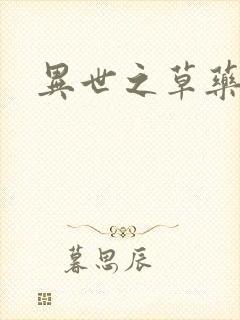 異世之草藥
暮思辰